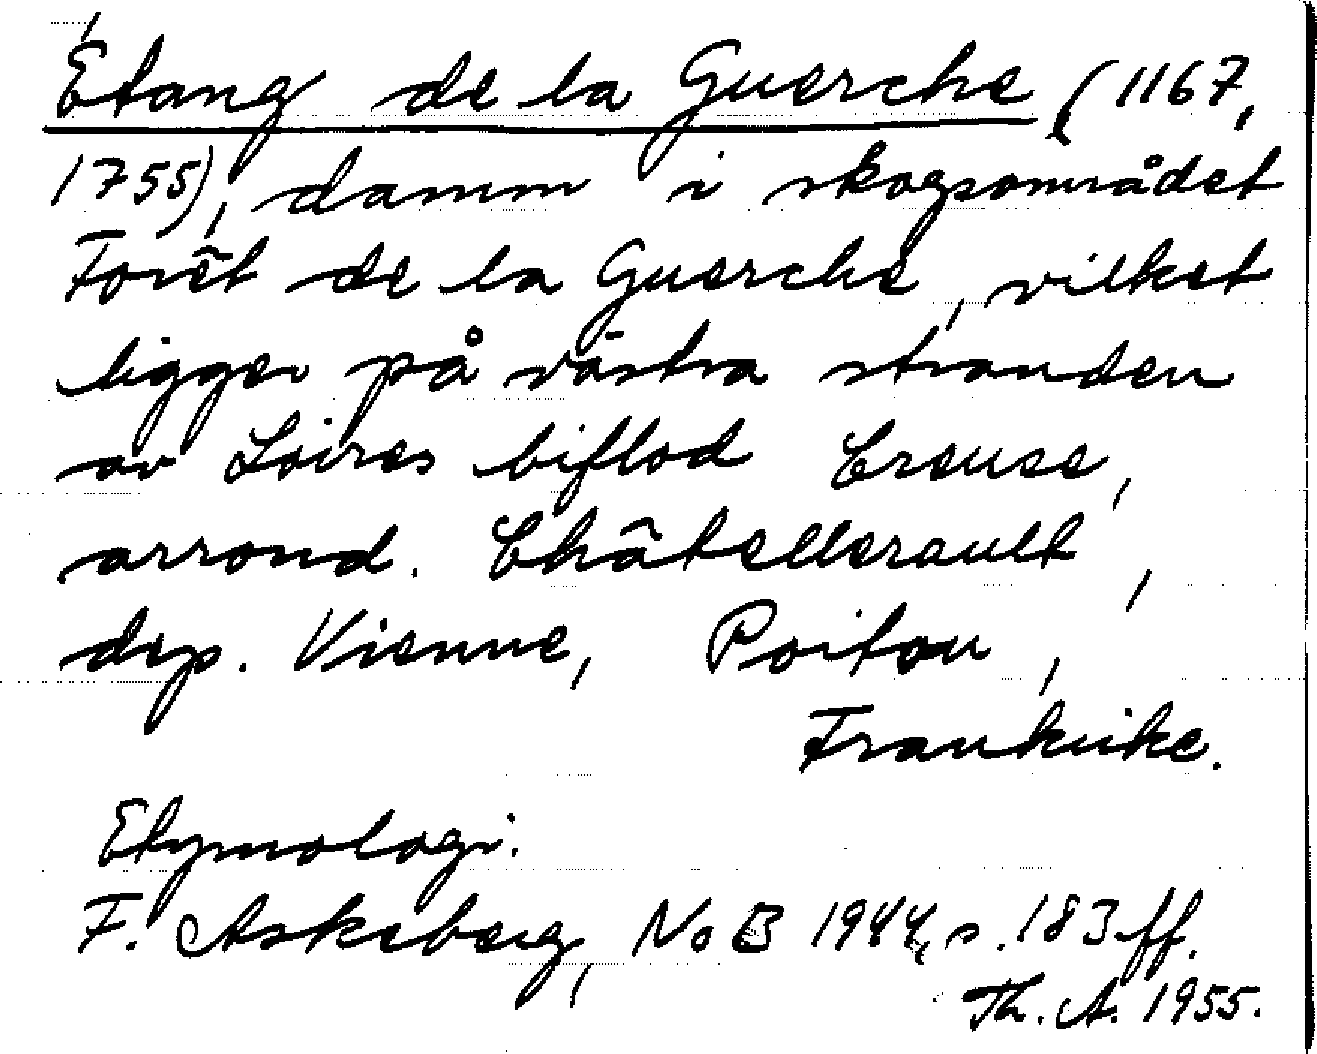 Étang de la Guerche (1167,
1755), damm i skogsområdet
Forêt de la Guerche, vilket
ligger på västra stranden
av Loires biflod Creuse,
arrond. Châtellerault,
dep. Vienne, Poitou,
Frankrike.
Etymologi.
F. Askeberg, NoB 1944, s. 183 ff.
Th. A. 1955.